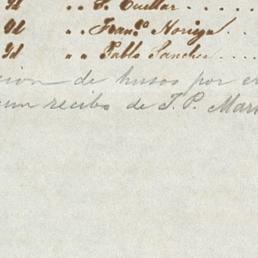 Id " " S. Cuellar . . . .
Id " " Fran.º Noriga . . .
Id " " Pablo Sanches . . . .
cion de husos por
cun recibo de T. P. Mar